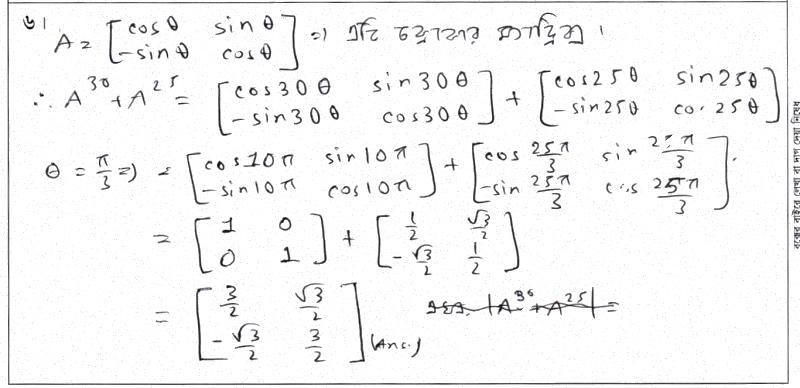 ৬।
A = [cosθ sinθ; -sinθ cosθ] ⇒ এটি
∴ A^30 + A^25 = [cos30θ sin30θ; -sin30θ cos30θ] + [cos25θ sin25θ; -sin25θ cos25θ]
θ = π/3 ⇒ = [cos10π sin10π; -sin10π cos10π] + [cos 25π/3 sin 25π/3; -sin 25π/3 cos 25π/3].
= [1 0; 0 1] + [1/2 √3/2; -√3/2 1/2]
= [3/2 √3/2; -√3/2 3/2] (Ans.) |A^30 + A^25| =
বক্সের বাইরে লেখা বা দাগ দেয়া নিষেধ